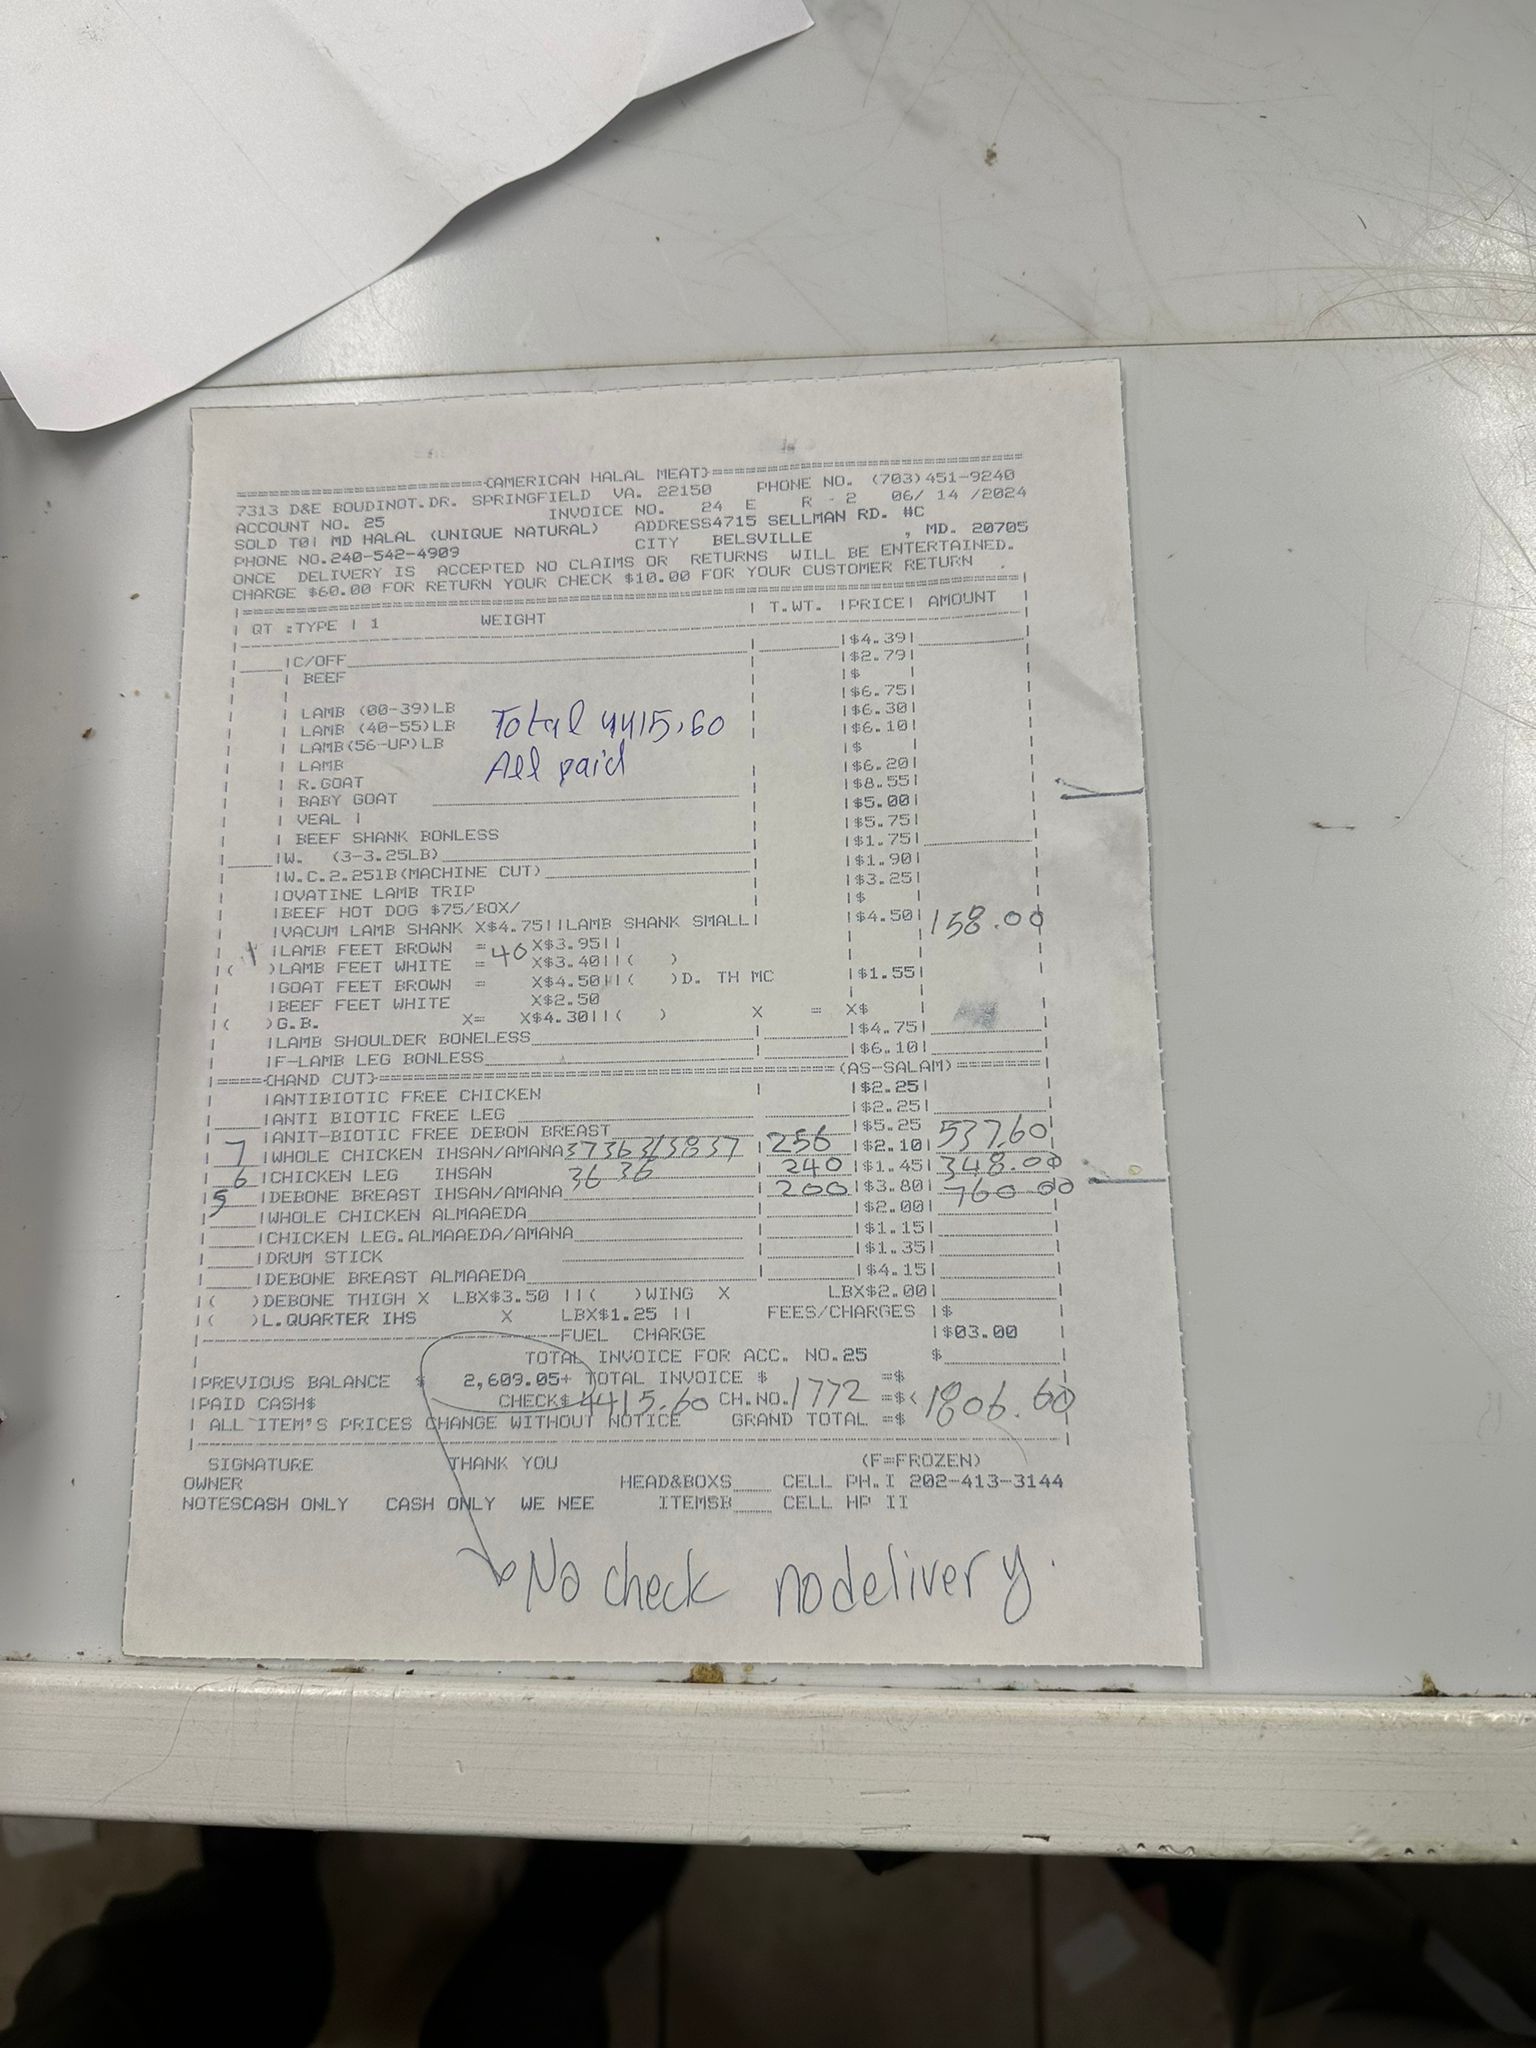 {AMERICAN HALAL MEAT}
7313 D&E BOUDINOT.DR. SPRINGFIELD VA. 22150 PHONE NO. (703)451-9240
ACCOUNT NO. 25 INVOICE NO. 24 E R - 2 06/ 14 /2024
SOLD TO| MD HALAL (UNIQUE NATURAL) ADDRESS4715 SELLMAN RD. #C
PHONE NO.240-542-4909 CITY BELSVILLE , MD. 20705
ONCE DELIVERY IS ACCEPTED NO CLAIMS OR RETURNS WILL BE ENTERTAINED.
CHARGE $60.00 FOR RETURN YOUR CHECK $10.00 FOR YOUR CUSTOMER RETURN .
QT :TYPE | 1 WEIGHT | T.WT. |PRICE| AMOUNT
|C/OFF |$4.39|
| BEEF |$2.79|
|$
| LAMB (00-39)LB |$6.75|
| LAMB (40-55)LB |$6.30|
| LAMB(56-UP)LB |$6.10|
Total 4415.60
All paid
| LAMB |$ |
| R.GOAT |$6.20|
| BABY GOAT |$8.55|
| VEAL | |$5.00|
| BEEF SHANK BONLESS |$5.75|
|W. (3-3.25LB) |$1.75|
|W.C.2.25lB(MACHINE CUT) |$1.90|
|OVATINE LAMB TRIP |$3.25|
|BEEF HOT DOG $75/BOX/ |$
|VACUM LAMB SHANK X$4.75||LAMB SHANK SMALL| |$4.50|
|LAMB FEET BROWN = 40 X$3.95|| 158.00
( )LAMB FEET WHITE = X$3.40||( )
|GOAT FEET BROWN = X$4.50||( )D. TH MC |$1.55|
|BEEF FEET WHITE X$2.50
|( )G.B. X= X$4.30||( ) X = X$
|LAMB SHOULDER BONELESS |$4.75|
|F-LAMB LEG BONLESS |$6.10|
{HAND CUT} (AS-SALAM)
|ANTIBIOTIC FREE CHICKEN |$2.25|
|ANTI BIOTIC FREE LEG |$2.25|
|ANIT-BIOTIC FREE DEBON BREAST |$5.25
7 |WHOLE CHICKEN IHSAN/AMANA 37 36 36 38 37 256 |$2.10| 537.60
6 |CHICKEN LEG IHSAN 36 36 240 |$1.45| 348.00
5 |DEBONE BREAST IHSAN/AMANA 200 |$3.80| 760.00
|WHOLE CHICKEN ALMAAEDA |$2.00|
|CHICKEN LEG.ALMAAEDA/AMANA |$1.15|
|DRUM STICK |$1.35|
|DEBONE BREAST ALMAAEDA |$4.15|
|( )DEBONE THIGH X LBX$3.50 ||( )WING X LBX$2.00|
|( )L.QUARTER IHS X LBX$1.25 || FEES/CHARGES |$
FUEL CHARGE |$03.00
TOTAL INVOICE FOR ACC. NO.25 $
|PREVIOUS BALANCE $ 2,609.05+ TOTAL INVOICE $ =$
|PAID CASH$ CHECK$ 4415.60 CH.NO. 1772 =$< 1806.60
| ALL ITEM'S PRICES CHANGE WITHOUT NOTICE GRAND TOTAL =$
SIGNATURE THANK YOU (F=FROZEN)
OWNER HEAD&BOXS CELL PH.I 202-413-3144
NOTESCASH ONLY CASH ONLY WE NEE ITEMSB CELL HP II
No check no delivery.